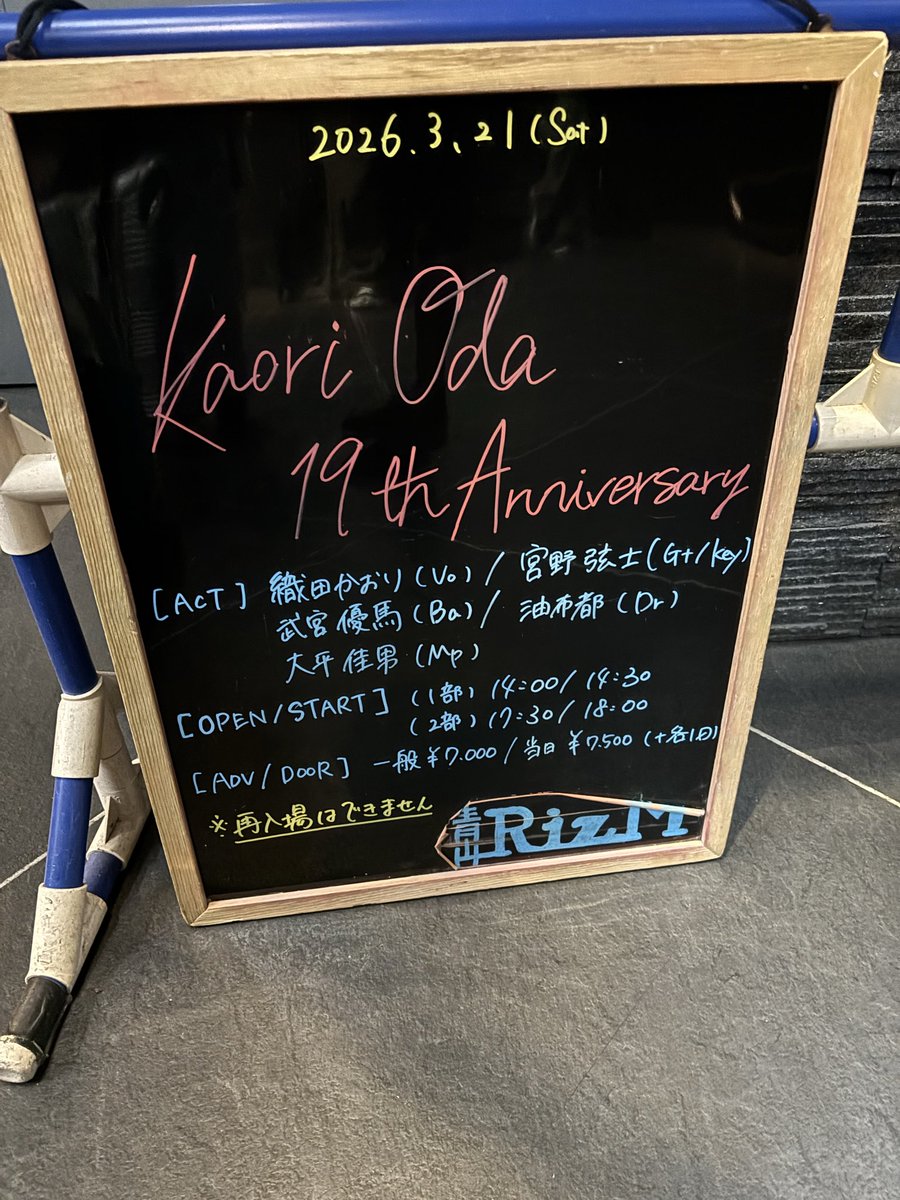 2026.3.21(Sat)
Kaori Oda
19th Anniversary
[ACT] 織田かおり(Vo)/宮野弦士(Gt/key)
武宮優馬(Ba)/油布都(Dr)
大平佳男(Mp)
[OPEN/START] (1部) 14:00/14:30
(2部) 17:30/18:00
[ADV/DOOR] 一般¥7.000/当日¥7.500(+各1D)
※再入場はできません
青山RizM